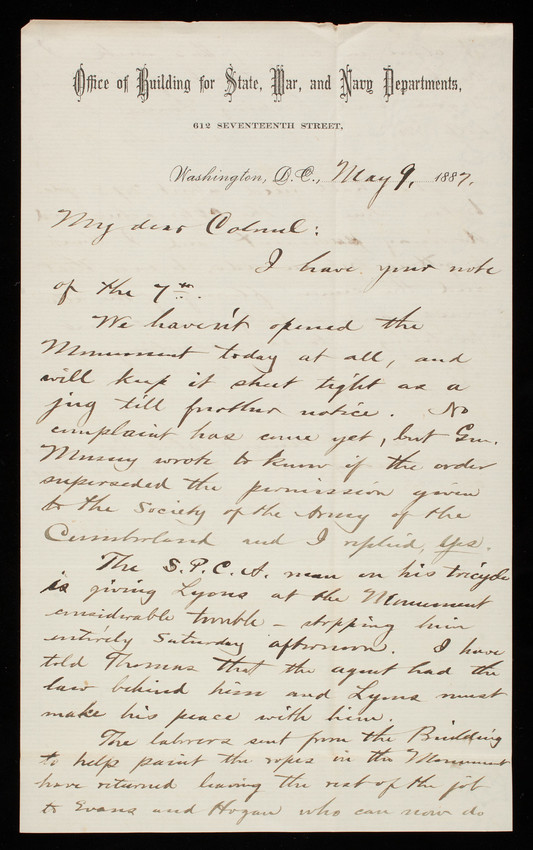 Office of Building for State, War, and Navy Departments,
612 SEVENTEENTH STREET,
Washington, D.C., May 9, 1887.
My dear Colonel:
I have your note
of the 7th.
We haven't opened the
Monument today at all, and
will keep it shut tight as a
jug till further notice. No
complaint has come yet, but Gen.
Mussey wrote to know if the order
superseded the permission given
to the Society of the Army of the
Cumberland and I replied, yes.
The S.P.C.A. man on his tricycle
is giving Lyons at the Monument
considerable trouble - stopping him
entirely Saturday afternoon. I have
told Thomas that the agent had the
law behind him and Lyons must
make his peace with him.
The laborers sent from the Building
to help paint the ropes in the Monument
have returned leaving the rest of the job
to Evans and Hogan who can now do